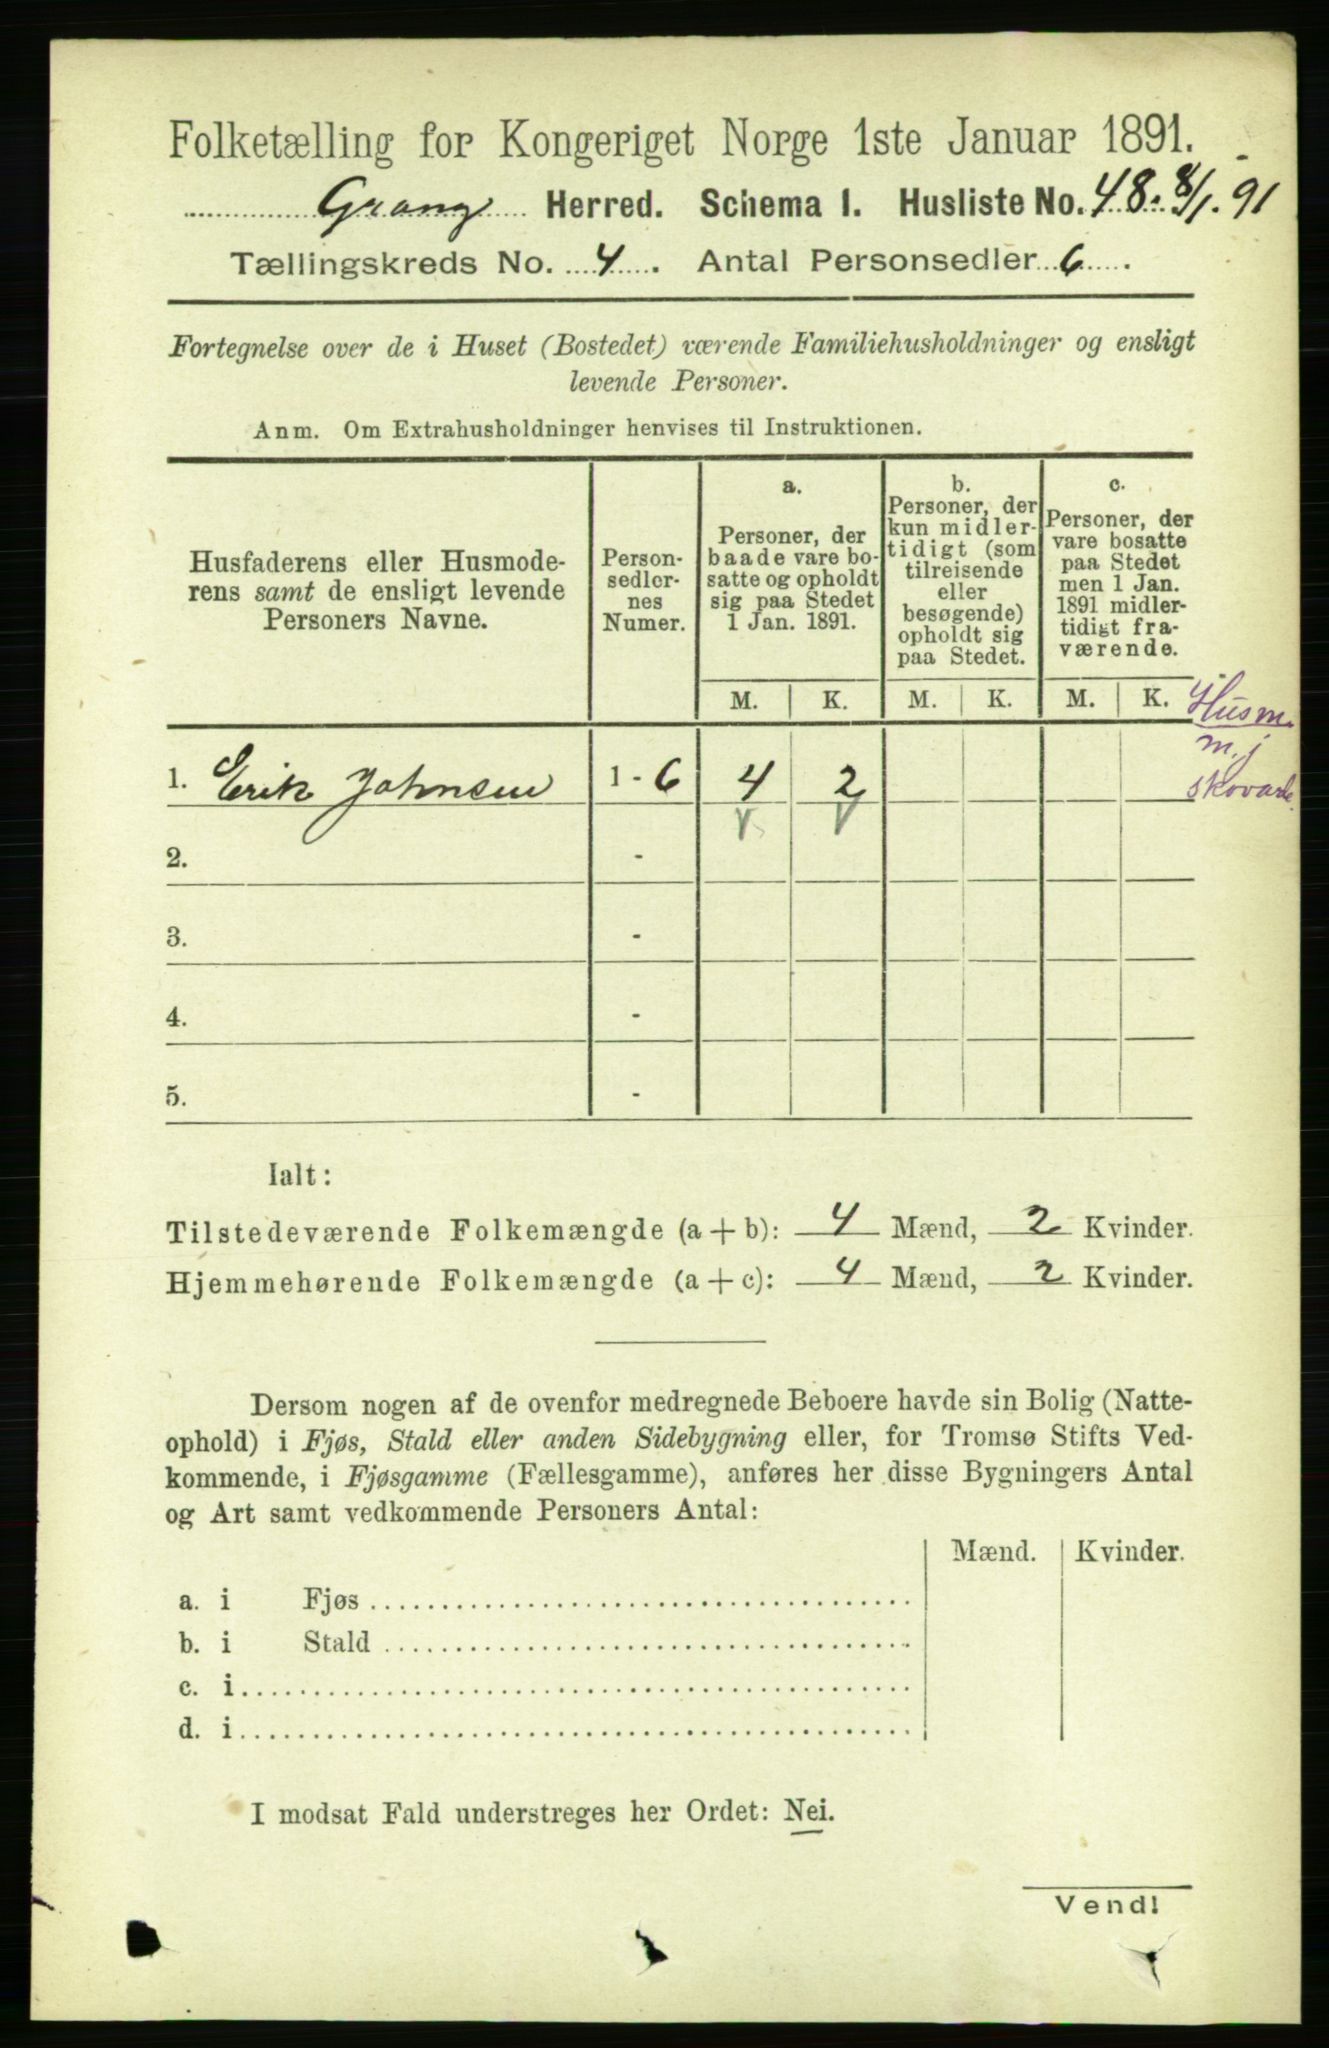 Folketælling for Kongeriget Norge 1ste Januar 1891.
Grong Herred. Schema 1. Husliste No. 48. 8/1. 91
Tællingskreds No. 4. Antal Personsedler 6.
Fortegnelse over de i Huset (Bostedet) værende Familiehusholdninger og ensligt
levende Personer.
Anm. Om Extrahusholdninger henvises til Instruktionen.
Husfaderens eller Husmode-
rens samt de ensligt levende
Personers Navne.
Person-
sedler-
nes
Numer.
a.
Personer, der
baade vare bo-
satte og opholdt
sig paa Stedet
1 Jan. 1891.
b.
Personer, der
kun midler-
tidigt (som
tilreisende
eller
besøgende)
opholdt sig
paa Stedet.
c.
Personer, der
vare bosatte
paa Stedet
men 1 Jan.
1891 midler-
tidigt fra-
værende.
M. K. M. K. M. K.
Husm.
m. j
1. Erik Johnsen 1 - 6 4 2
2. -
3. -
4. -
5. -
Ialt:
Tilstedeværende Folkemængde (a + b): 4 Mænd, 2 Kvinder.
Hjemmehørende Folkemængde (a + c): 4 Mænd, 2 Kvinder.
Dersom nogen af de ovenfor medregnede Beboere havde sin Bolig (Natte-
ophold) i Fjøs, Stald eller anden Sidebygning eller, for Tromsø Stifts Ved-
kommende, i Fjøsgamme (Fællesgamme), anføres her disse Bygningers Antal
og Art samt vedkommende Personers Antal:
Mænd. Kvinder.
a. i Fjøs
b. i Stald
c. i
d. i
I modsat Fald understreges her Ordet: Nei.
Vend!